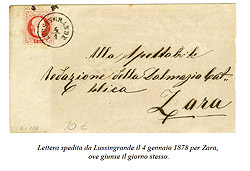 LUSSINGRANDE
4
1
Alla Spettabile
Redazione della Dalmazia Cat-
tolica
Zara
70 €
Lettera spedita da Lussingrande il 4 gennaio 1878 per Zara,
ove giunse il giorno stesso.